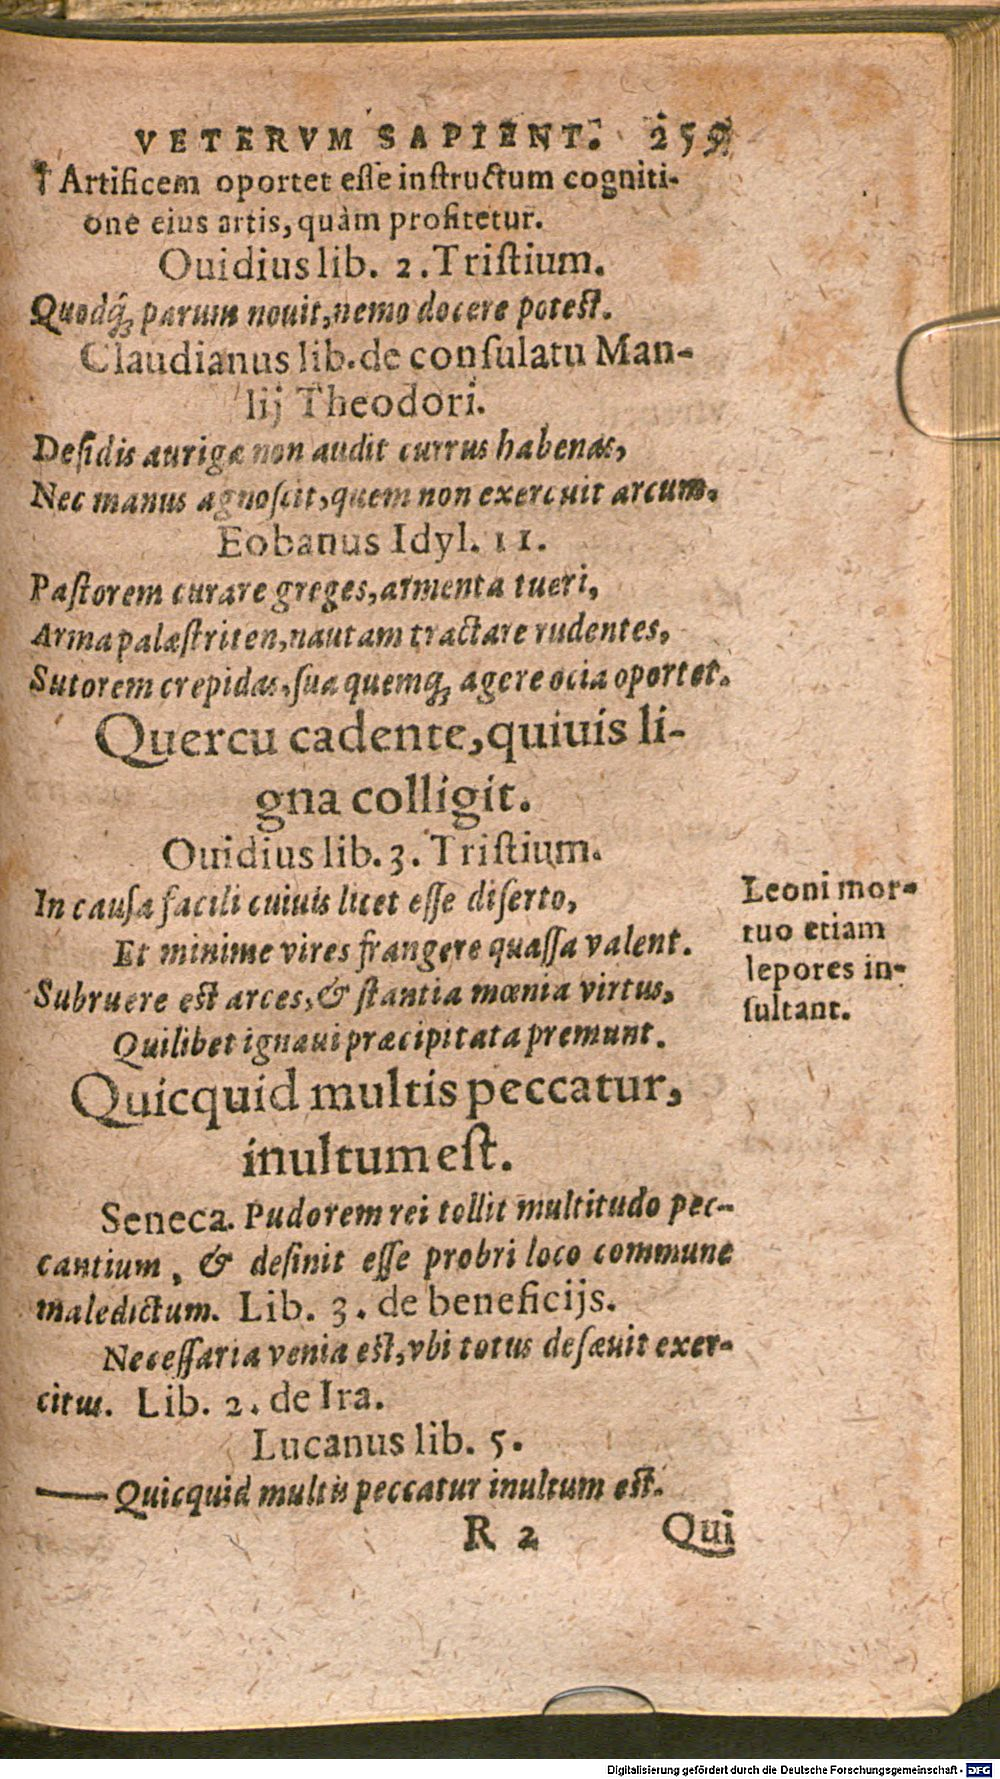 VETERVM SAPIENT. 259
† Artificem oportet eſſe inſtructum cogniti-
one eius artis, quàm profitetur.
Ouidius lib. 2. Triſtium.
Quodq́; parum nouit, nemo docere poteſt.
Claudianus lib. de conſulatu Man-
lij Theodori.
Deſidis aurigæ non audit currus habenas,
Nec manus agnoſcit, quem non exercuit arcum.
Eobanus Idyl. 11.
Paſtorem curare greges, armenta tueri,
Arma palæſtriten, nautam tractare rudentes,
Sutorem crepidas, ſua quemq; agere ocia oportet.
Quercu cadente, quiuis li-
gna colligit.
Ouidius lib. 3. Triſtium.
In cauſa facili cuiuis licet eſſe diſerto,
Et minime vires frangere quaſſa valent.
Subruere eſt arces, & ſtantia mœnia virtus,
Quilibet ignaui præcipitata premunt.
Leoni mor-
tuo etiam
lepores in-
ſultant.
Quicquid multis peccatur,
inultum eſt.
Seneca. Pudorem rei tollit multitudo pec-
cantium, & deſinit eſſe probri loco commune
maledictum. Lib. 3. de beneficijs.
Neceſſaria venia eſt, vbi totus deſæuit exer-
citus. Lib. 2. de Ira.
Lucanus lib. 5.
— Quicquid multis peccatur inultum eſt.
R 2 Qui
Digitalisierung gefördert durch die Deutsche Forschungsgemeinschaft - DFG